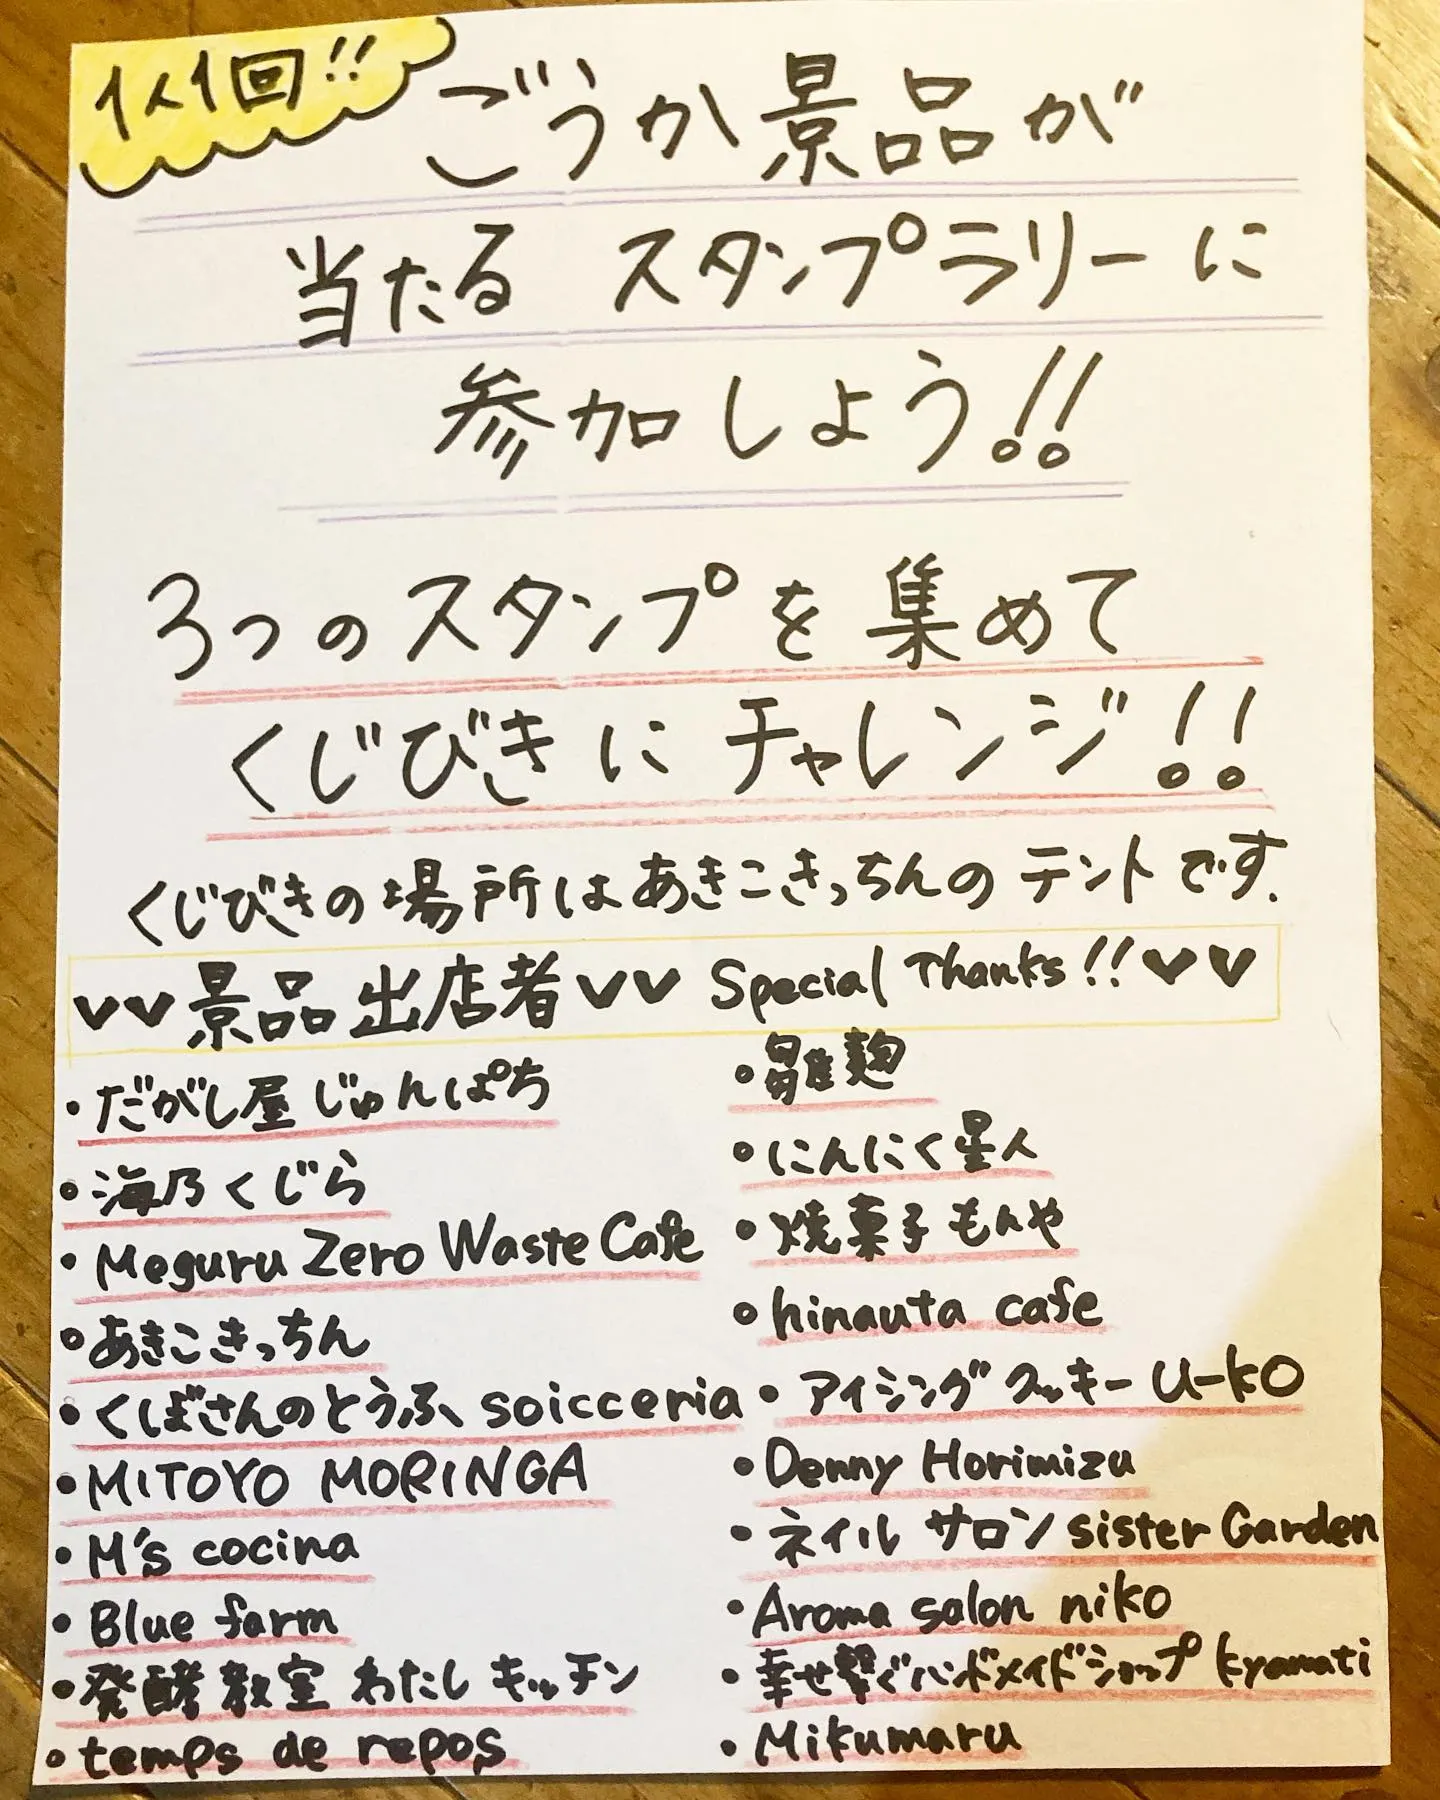 1人1回!!
ごうか景品が
当たる スタンプラリーに
参加しよう!!
3つのスタンプを集めて
くじびきにチャレンジ!!
くじびきの場所はあきこきっちんのテントです.
♥♥景品出店者♥♥ Special Thanks!!♥♥
・だがし屋じゅんぱち
・海乃くじら
・Meguru Zero Waste Cafe
・あきこきっちん
・くぼさんのとうふ soicceria
・MITOYO MORINGA
・M's cocina
・Blue farm
・発酵教室 わたしキッチン
・temps de repos
・麹
・にんにく星人
・焼菓子もんや
・hinauta cafe
・アイシングクッキー U-KO
・Denny Horimizu
・ネイル サロン sister Garden
・Aroma salon niko
・幸せ繋ぐハンドメイドショップ kyamati
・Mikumaru